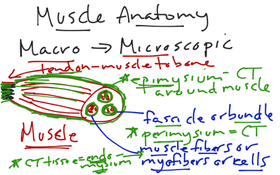 Muscle Anatomy
Macro → Microscopic
tendon-muscle to bone
*epimysium = CT
around muscle
fascicle or bundle
*perimysium = CT
Muscle
muscle fibers or
myofibers or cells
*CT tissue = endomysium